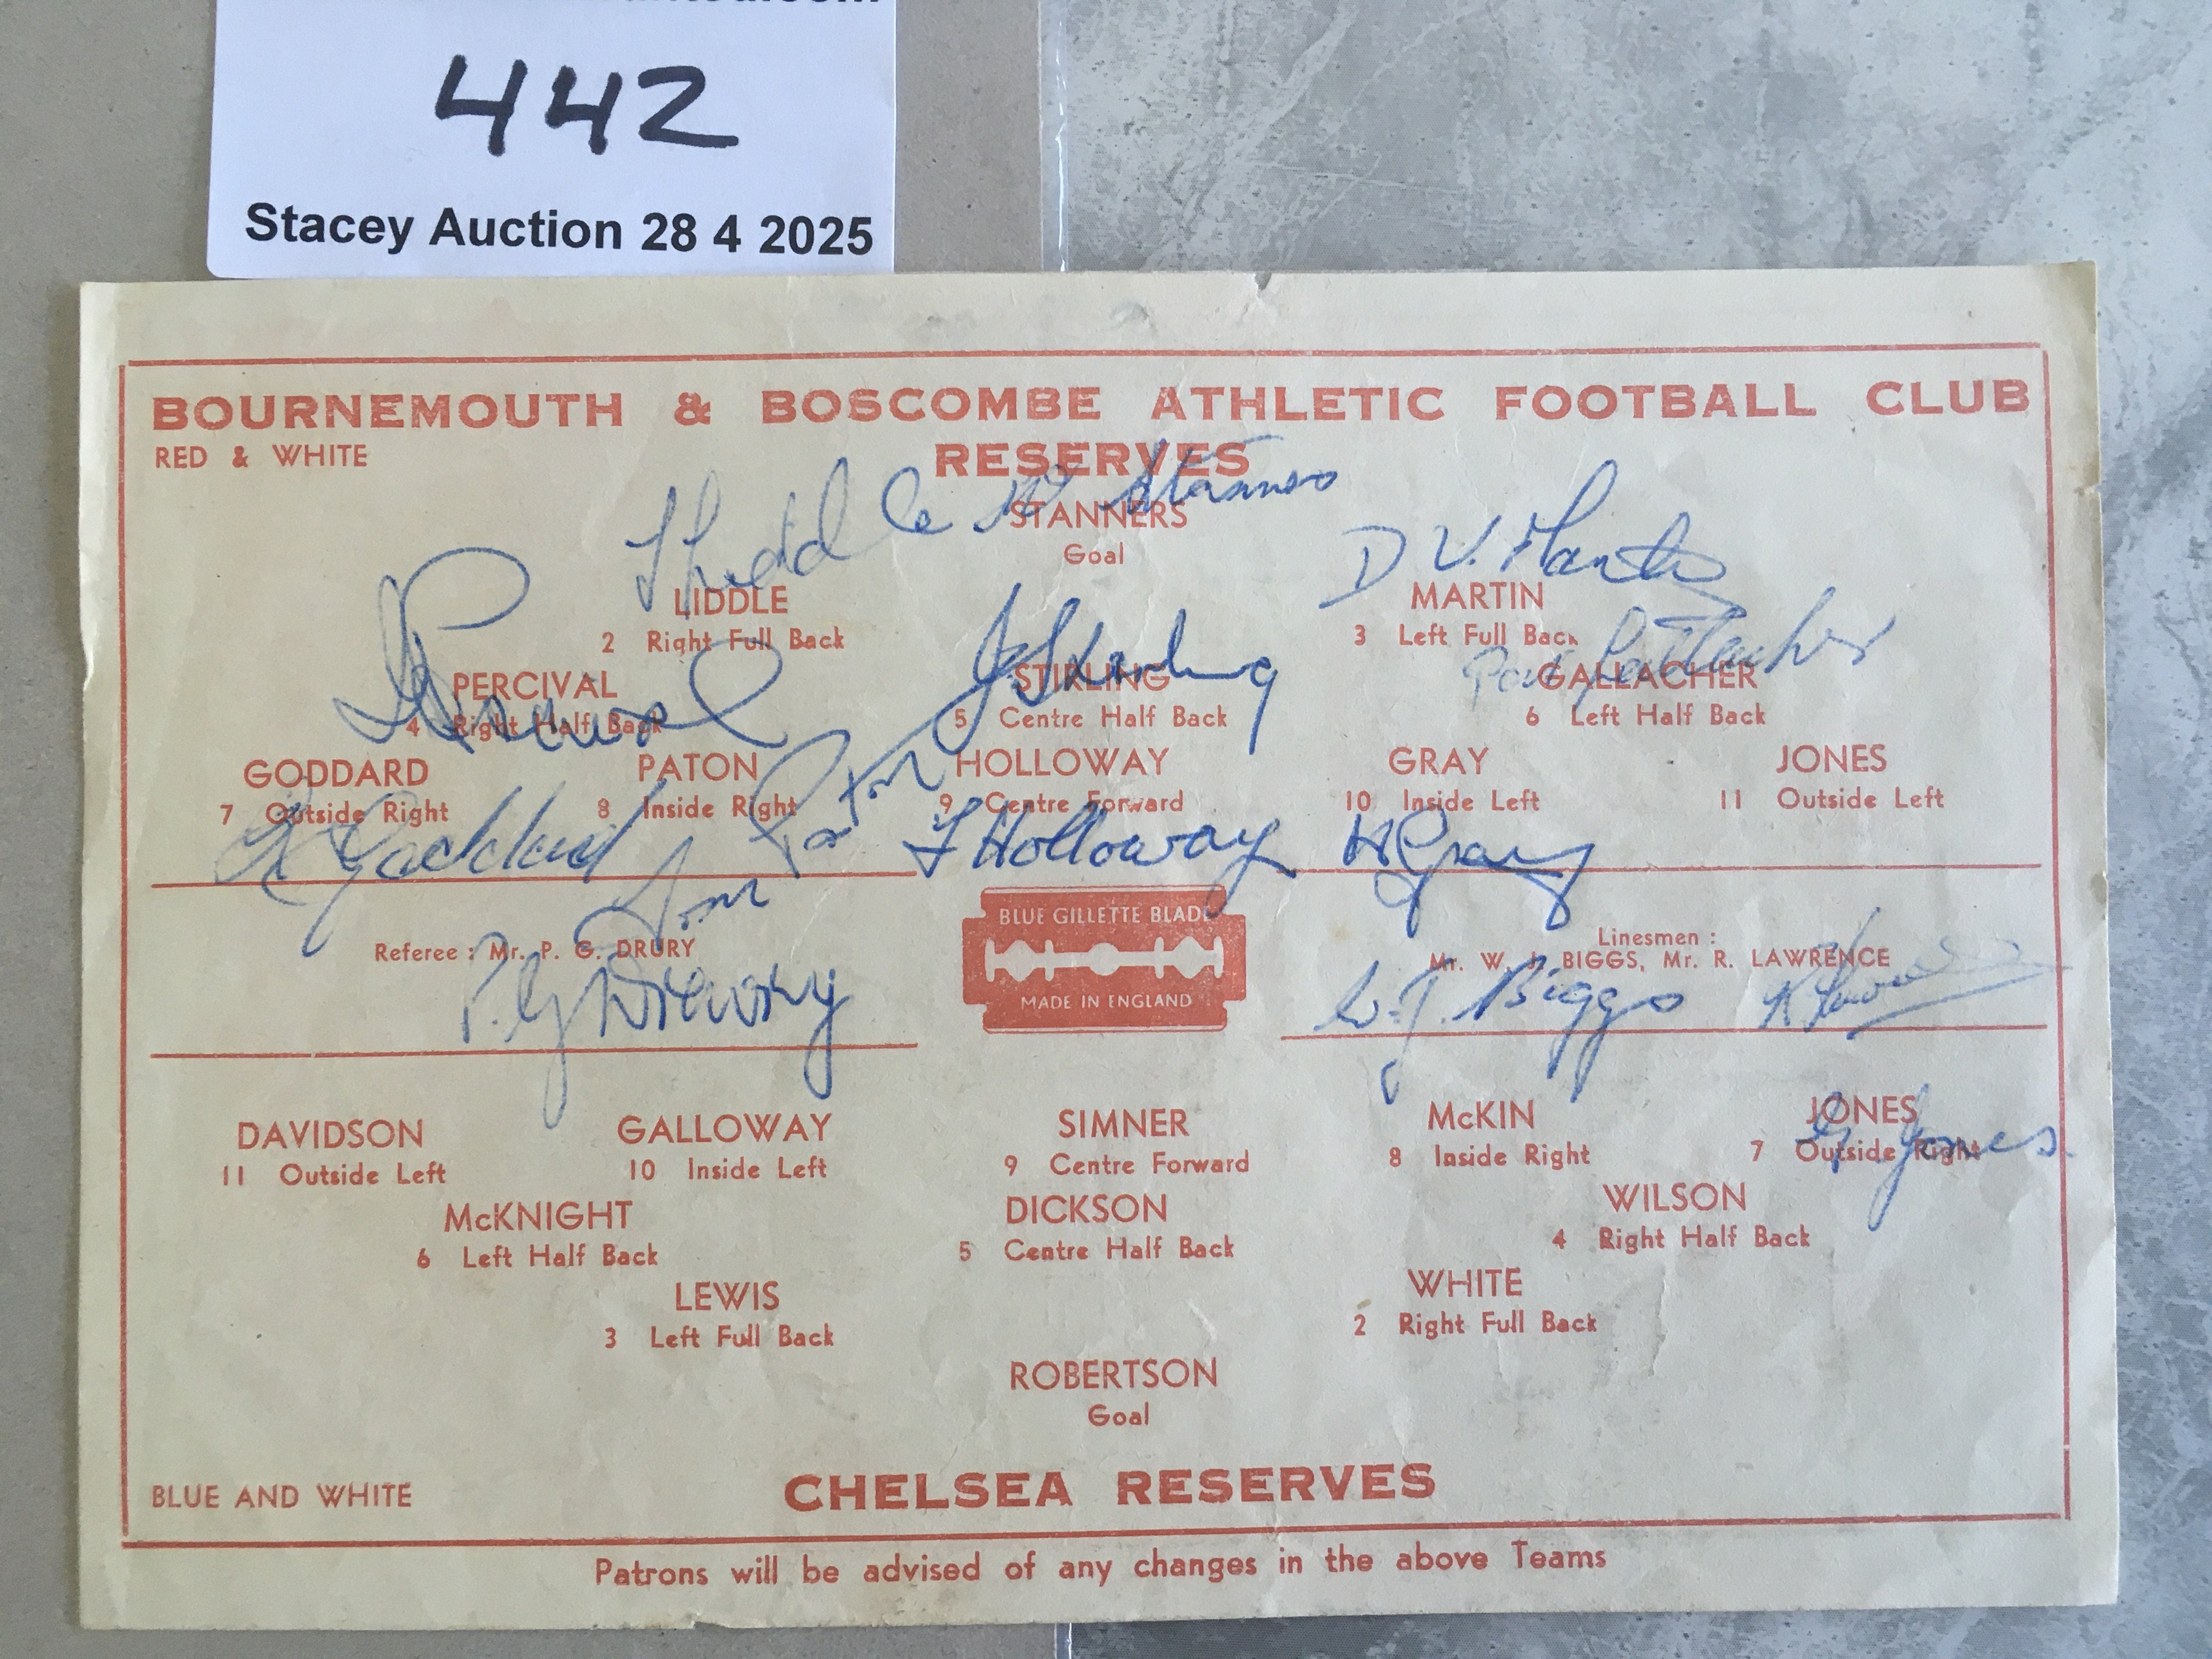 442
Stacey Auction 28 4 2025
BOURNEMOUTH & BOSCOMBE ATHLETIC FOOTBALL CLUB
RED & WHITE
RESERVES
Stanners
STANNERS
Goal
D V. Martin
LIDDLE
MARTIN
2 Right Full Back
3 Left Full Back
J. Stirling
Gallacher
PERCIVAL
STIRLING
GALLACHER
4 Right Half Back
5 Centre Half Back
6 Left Half Back
Percival
GODDARD
PATON
HOLLOWAY
GRAY
JONES
7 Outside Right
8 Inside Right
9 Centre Forward
10 Inside Left
11 Outside Left
R Goddard
Paton
Holloway
H Gray
BLUE GILLETTE BLADE
MADE IN ENGLAND
Referee : Mr. P. G. DRURY
P. G Drewry
Linesmen :
Mr. W. J. BIGGS, Mr. R. LAWRENCE
W. J. Biggs
DAVIDSON
GALLOWAY
SIMNER
McKIN
JONES
11 Outside Left
10 Inside Left
9 Centre Forward
8 Inside Right
7 Outside Right
Jones
McKNIGHT
DICKSON
WILSON
6 Left Half Back
5 Centre Half Back
4 Right Half Back
LEWIS
WHITE
3 Left Full Back
2 Right Full Back
ROBERTSON
Goal
BLUE AND WHITE
CHELSEA RESERVES
Patrons will be advised of any changes in the above Teams